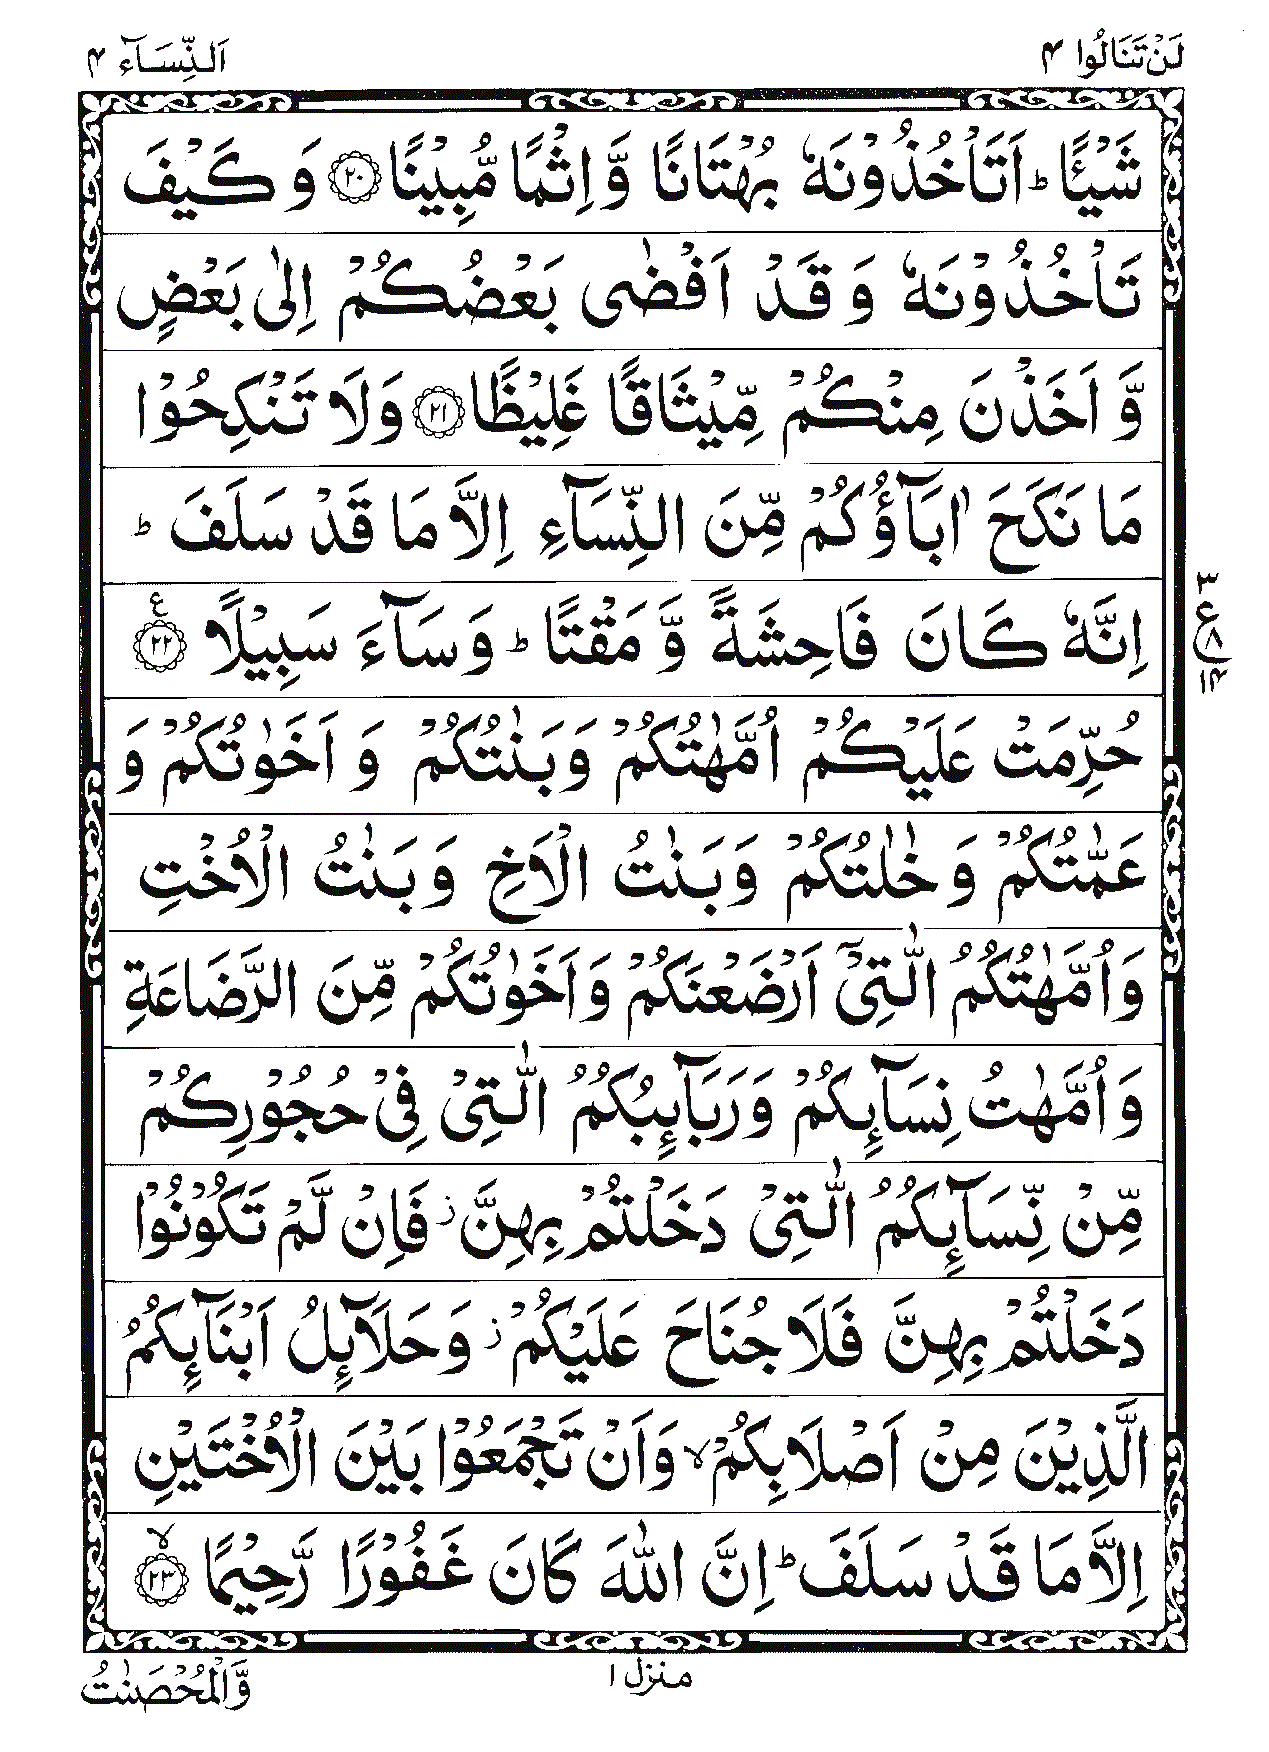 لَنْ تَنَالُوا ۴ اَلنِّسَآء ۴
شَيْـًٔا ؕ اَتَاْخُذُوْنَهٗ بُهْتَانًا وَّ اِثْمًا مُّبِيْنًا ﴿۲۰﴾ وَ كَيْفَ
تَاْخُذُوْنَهٗ وَ قَدْ اَفْضٰى بَعْضُكُمْ اِلٰى بَعْضٍ
وَّ اَخَذْنَ مِنْكُمْ مِّيْثَاقًا غَلِيْظًا ﴿۲۱﴾ وَلَا تَنْكِحُوْا
مَا نَكَحَ اٰبَآؤُكُمْ مِّنَ النِّسَآءِ اِلَّا مَا قَدْ سَلَفَ ؕ
اِنَّهٗ كَانَ فَاحِشَةً وَّ مَقْتًا ؕ وَسَآءَ سَبِيْلًا ﴿۲۲﴾ ع
۳ ع ۸ ۱۴
حُرِّمَتْ عَلَيْكُمْ اُمَّهٰتُكُمْ وَبَنٰتُكُمْ وَ اَخَوٰتُكُمْ وَ
عَمّٰتُكُمْ وَ خٰلٰتُكُمْ وَبَنٰتُ الْاَخِ وَبَنٰتُ الْاُخْتِ
وَاُمَّهٰتُكُمُ الّٰتِيْٓ اَرْضَعْنَكُمْ وَاَخَوٰتُكُمْ مِّنَ الرَّضَاعَةِ
وَاُمَّهٰتُ نِسَآئِكُمْ وَرَبَآئِبُكُمُ الّٰتِيْ فِيْ حُجُوْرِكُمْ
مِّنْ نِّسَآئِكُمُ الّٰتِيْ دَخَلْتُمْ بِهِنَّ ز فَاِنْ لَّمْ تَكُوْنُوْا
دَخَلْتُمْ بِهِنَّ فَلَا جُنَاحَ عَلَيْكُمْ ز وَحَلَآئِلُ اَبْنَآئِكُمُ
الَّذِيْنَ مِنْ اَصْلَابِكُمْ ۙ وَاَنْ تَجْمَعُوْا بَيْنَ الْاُخْتَيْنِ
اِلَّا مَا قَدْ سَلَفَ ؕ اِنَّ اللّٰهَ كَانَ غَفُوْرًا رَّحِيْمًا ﴿۲۳﴾ ۙ
منزل ۱
وَّالْمُحْصَنٰتُ